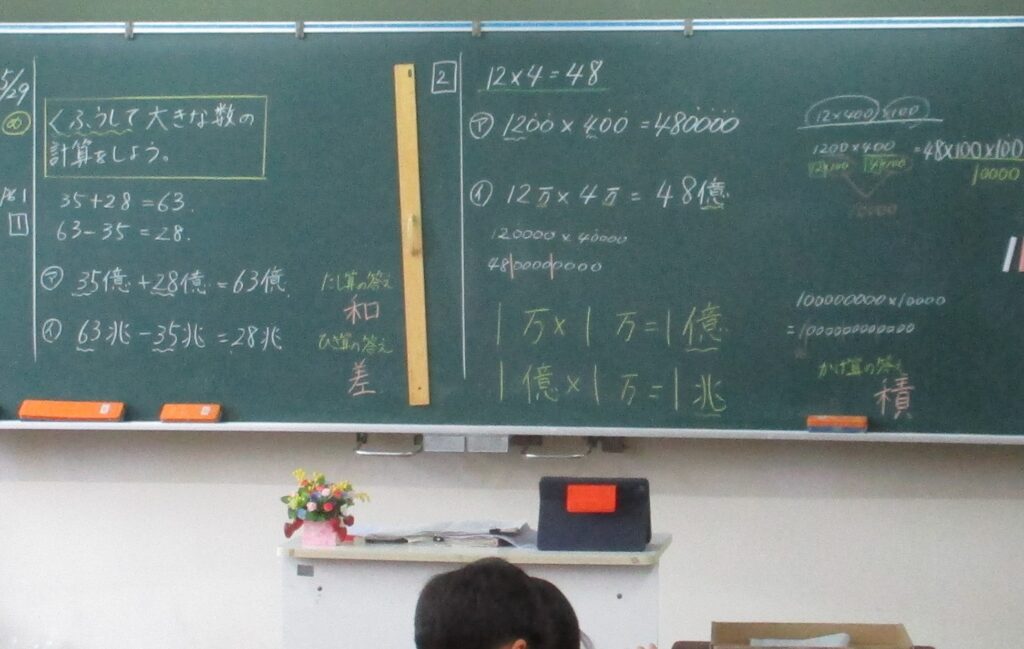 5/29
め
くふうして大きな数の
計算をしよう。
1
35+28=63.
63-35=28.
ア 35億+28億=63億
イ 63兆-35兆=28兆
たし算の答え
和
ひき算の答え
差
2
12×4=48
ア 1200×400=480000
イ 12万×4万=48億
120000×40000
4800000000
1万×1万=1億
1億×1万=1兆
(12×400)×100
1200×400=48×100×100
12×100 4×100 10000
10000
100000000×10000
=1000000000000
かけ算の答え
積